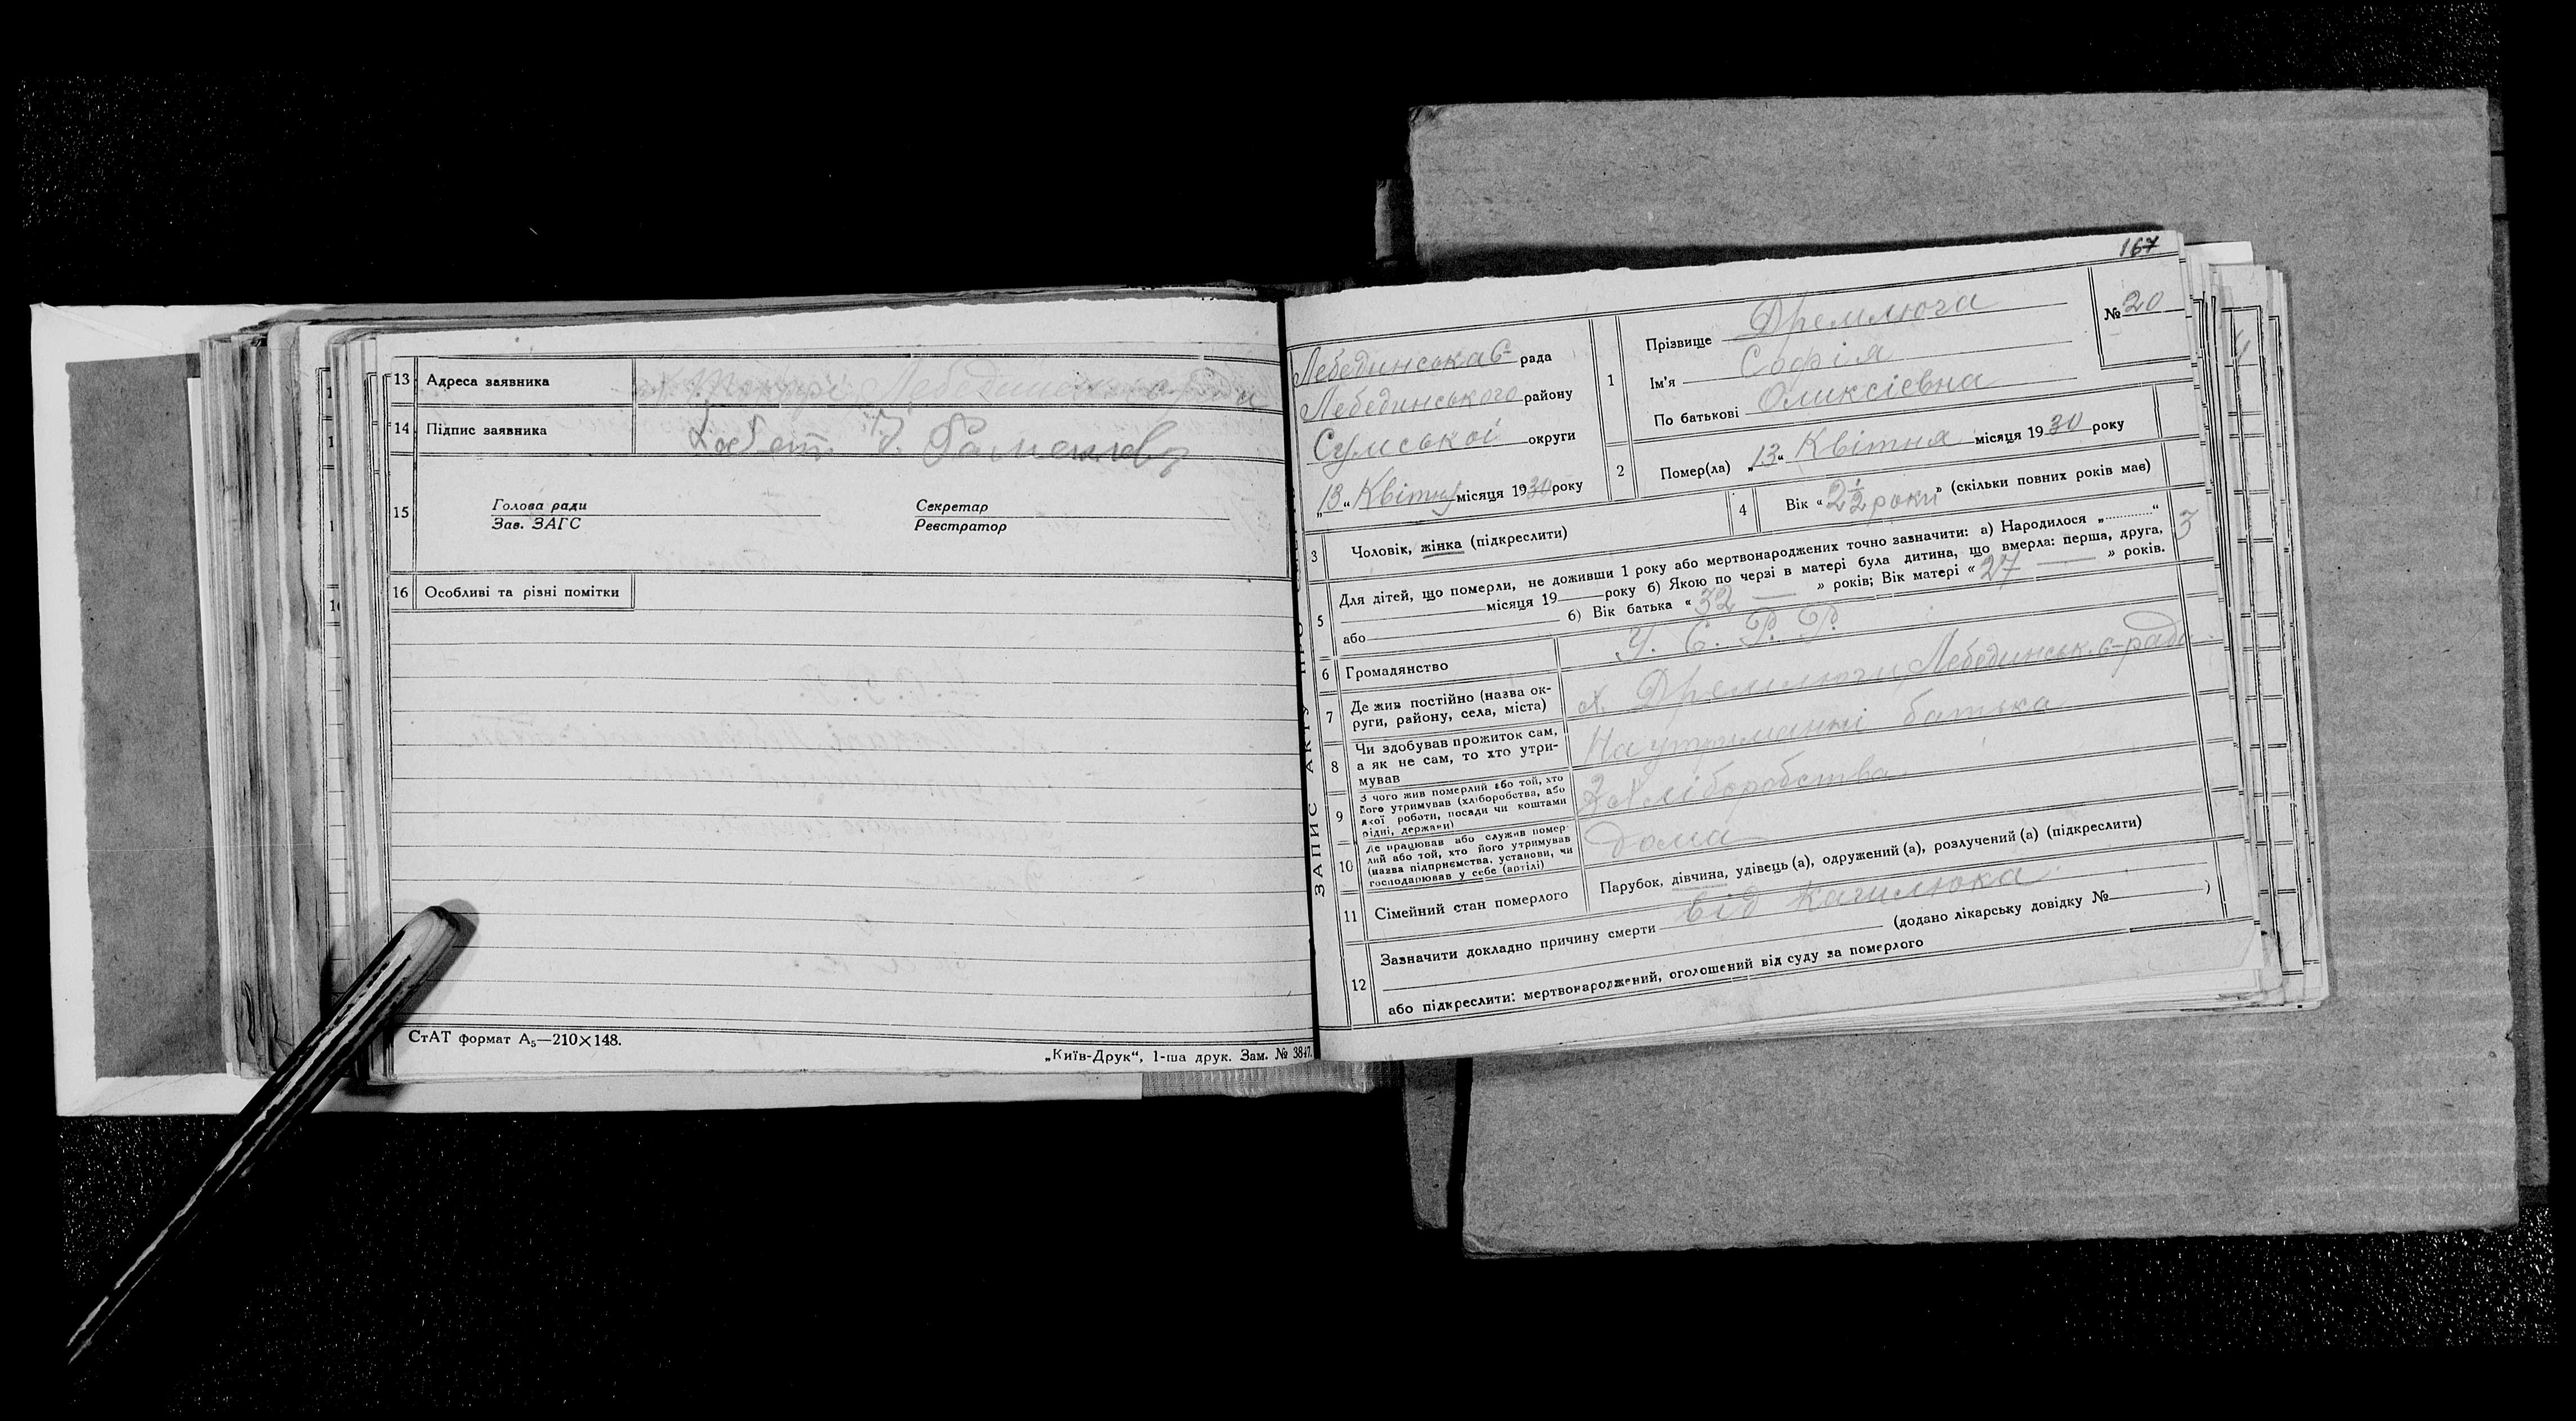 13 Адреса заявника
14 Підпис заявника
15 Голова ради Секретар
Зав. ЗАГС Реєстратор
16 Особливі та різні помітки
СтАТ формат А₅—210×148.
„Київ-Друк“, 1-ша друк. Зам. № 3847.
167
ЗАПИС АКТУ ПРО
Лебединська с- рада
Лебединського району
Сумської округи
„13“ Квітня місяця 1930 року
1 Прізвище Дремлюга
Ім'я Софія
По батькові Оликсієвна
№ 20
2 Помер(ла) „13“ Квітня місяця 1930 року
3 Чоловік, жінка (підкреслити)
4 Вік «2½ роки» (скільки повних років має)
5 Для дітей, що померли, не доживши 1 року або мертвонароджених точно зазначити: а) Народилося „............“
місяця 19 року б) Якою по черзі в матері була дитина, що вмерла: перша, друга, 3
або б) Вік батька «32 » років; Вік матері «27 » років.
6 Громадянство У. С. Р. Р.
7 Де жив постійно (назва ок-
руги, району, села, міста) х. Дремлюги, Лебединськ. с-ради
8 Чи здобував прожиток сам,
а як не сам, то хто утри-
мував На утриманні батька
9 З чого жив померлий або той, хто
його утримував (хліборобства, або
якої роботи, посади чи коштами
рідні, держави) З хліборобства
10 Де працював або служив помер-
лий або той, хто його утримував
(назва підприємства, установи, чи
господарював у себе (артілі) Дома
11 Сімейний стан померлого Парубок, дівчина, удівець (а), одружений (а), розлучений (а) (підкреслити)
12 Зазначити докладно причину смерти від кашлюка
(додано лікарську довідку № )
або підкреслити: мертвонароджений, оголошений від суду за померлого